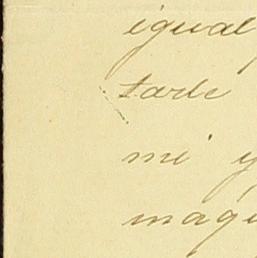 igual
tarde
mi y
mag